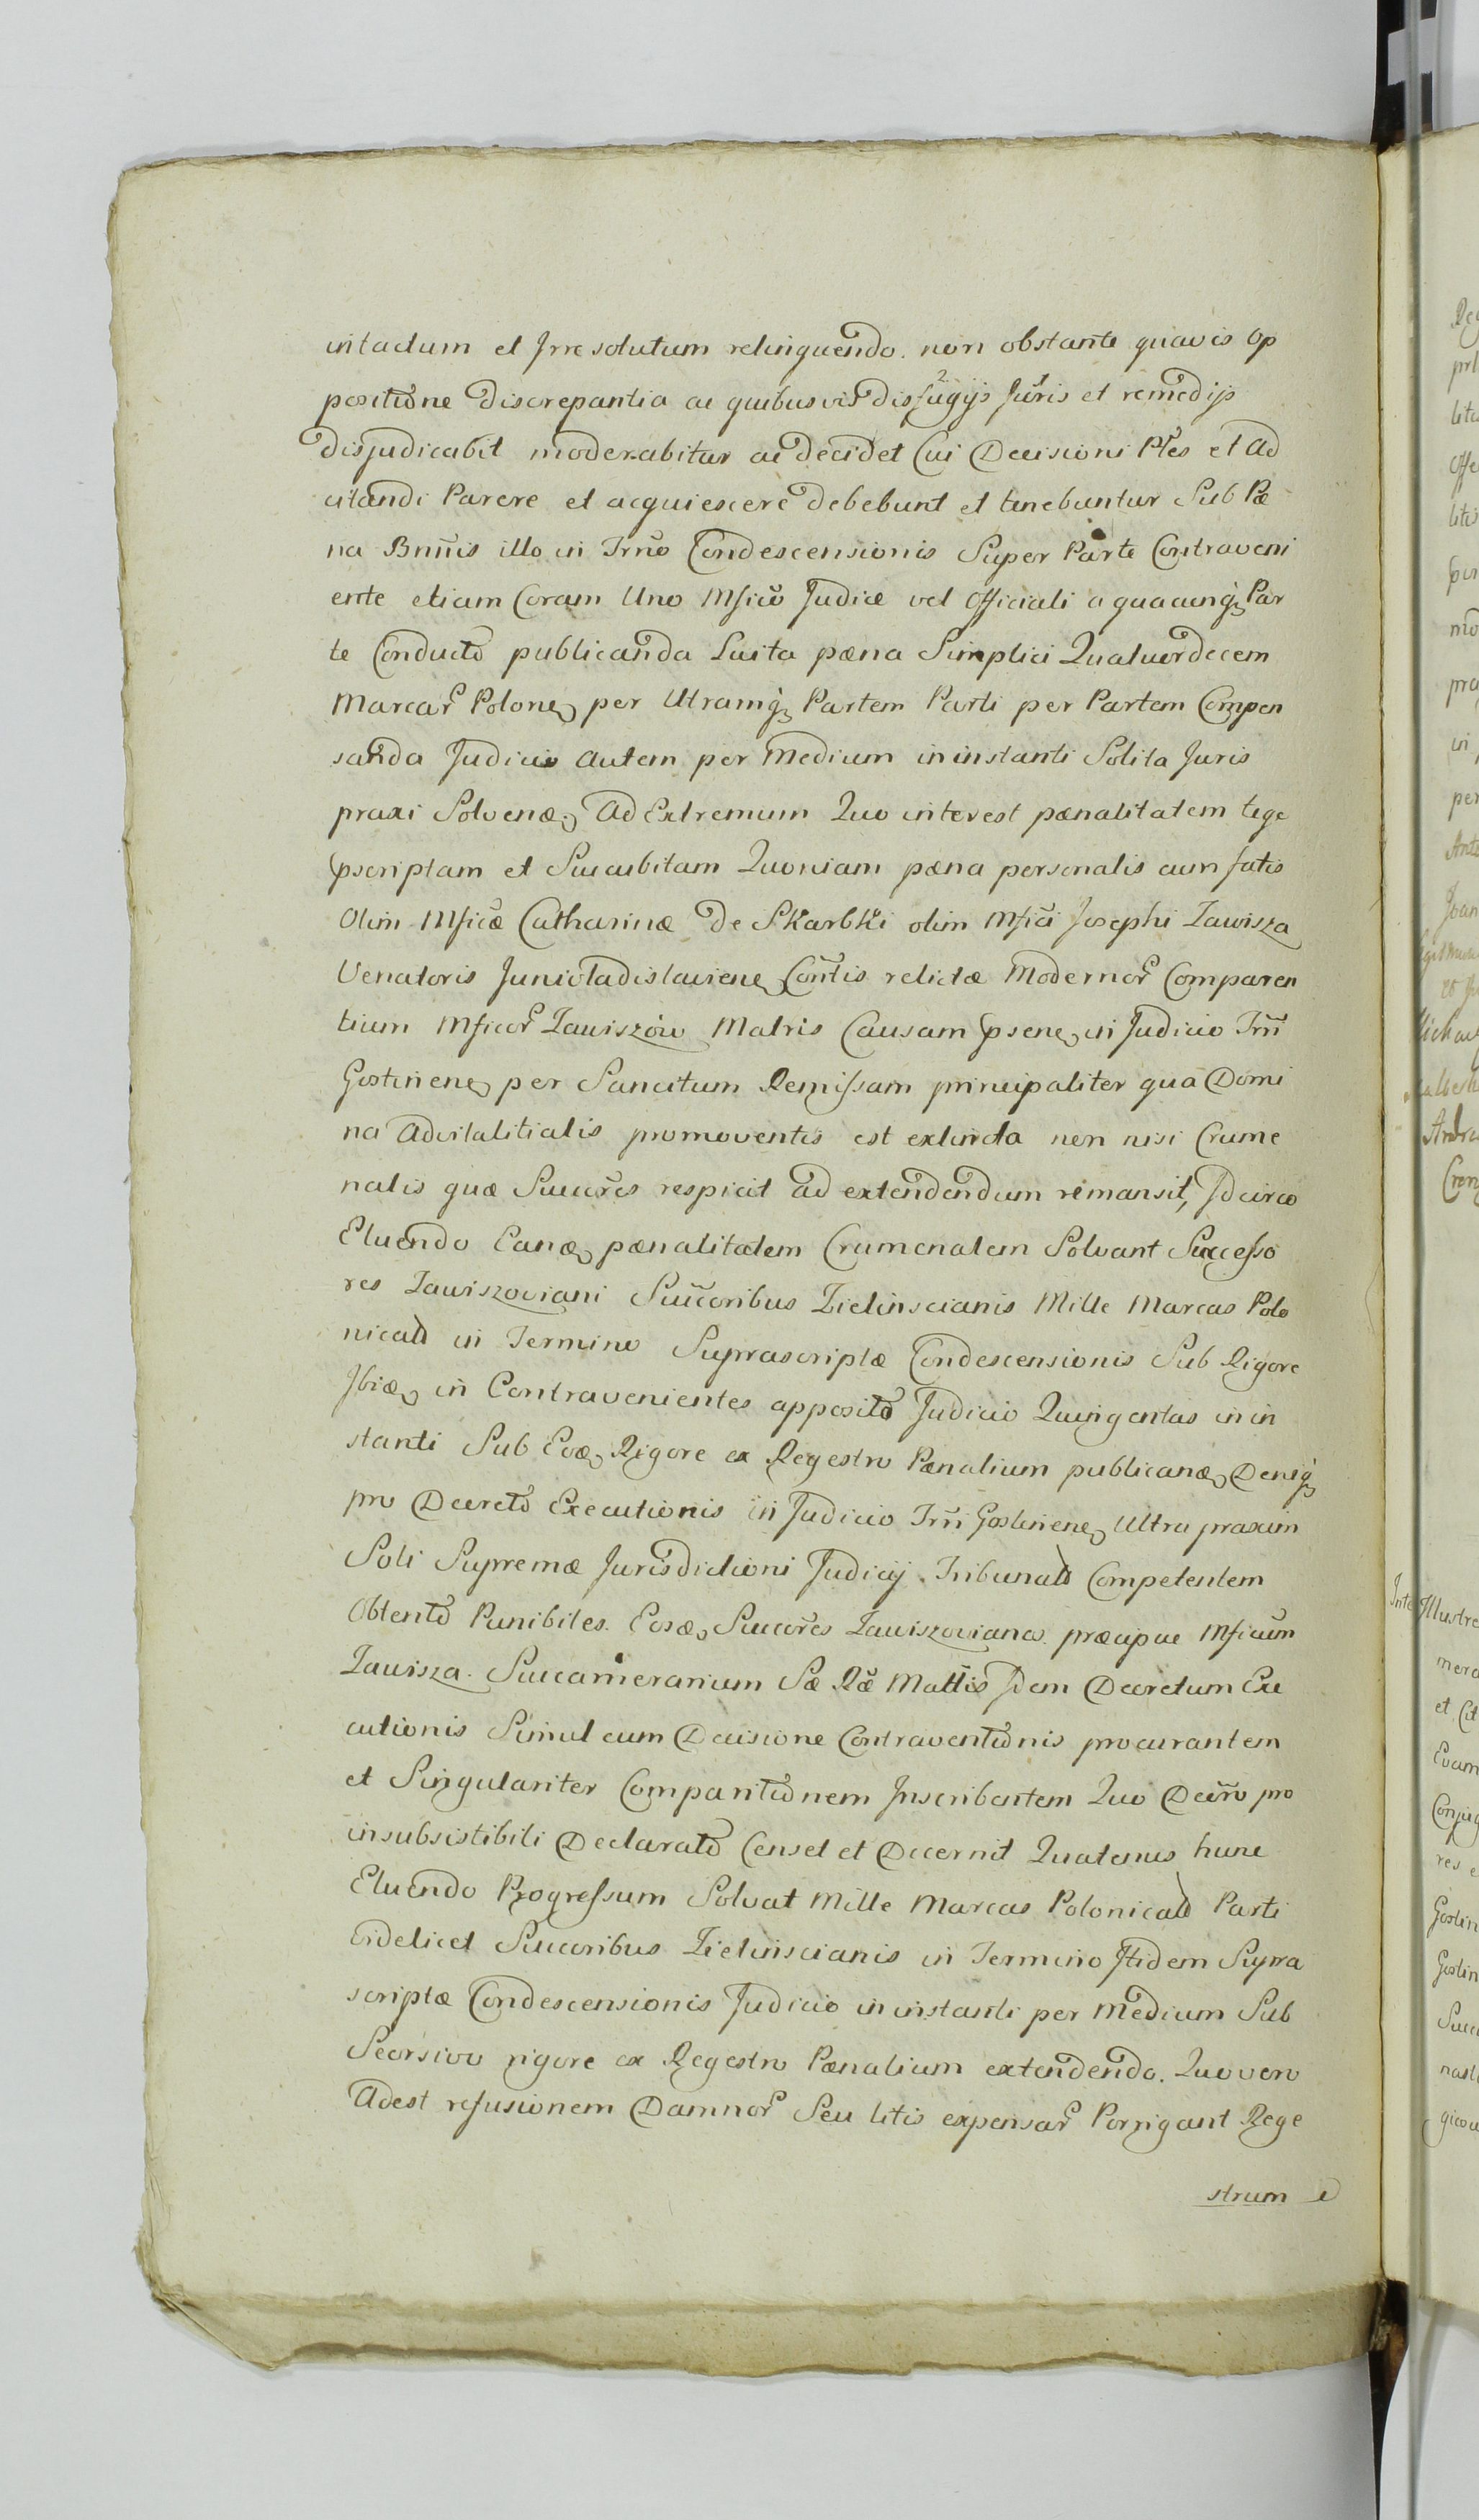 intactum et Irresolutum relinquendo. non obstante quavis Op
positione discrepantia ac quibusvis diffugijs Juris et remedijs
disjudicabit moderabitur ac decidet Cui Decisioni Ptes et Ad
citandi Parere et acquiescere debebunt et tenebuntur Sub Pæ
na Bnnis illo in Trno Condescensionis Super Parte Contraveni
ente etiam Coram Uno Mfico Judice vel Officiali a quacunq Par
te Conducto publicanda Luita pæna Simplici Quatuordecem
Marcar Polone per Utramq Partem Parti per Partem Compen
sanda Judicio autem per Medium in instanti Solita Juris
praxi Solvenæ. Ad Extremum Quo interest pænalitatem lege
pscriptam et Succubitam Quoniam pæna personalis cum fatis
Olim Mficæ Catharinæ de Skarbki olim Mfici Josephi Zawisza
Venatoris Juniwladislaviene Contis relictæ Modernor Comparen
tium Mficor Zawiszow Matris Causam psene in Judicio Trri
Gostinene per Sancitum Remissam principaliter qua Domi
na Advitalitialis promoventis est extincta non nisi Crume
nalis quæ Succores respicit ad extendendum remansit, Idcirco
Eluendo Eanæ pænalitatem Crumenalem Solvant Successo
res Zawiszoviani Succoribus Zielinscianis Mille Marcas Polo
nicales in Termino Suprascriptæ Condescensionis Sub Rigore
Ibiæ in Contravenientes apposito Judicio Quingentas in in
stanti Sub Eoæ Rigore ex Regestro Pænalium publicanæ Deniq
pro Decreto Executionis in Judicio Trri Gostinene Ultra praxim
Soli Supremæ Jurisdictioni Judicij Tribunalis Competentem
Obtento Punibiles. Eosæ Succores Zawiszovianos præcipue Mficum
Zawisza Succamerarium Sæ Ræ Mattis Idem Decretum Exe
cutionis Simul cum Decisione Contraventionis procurantem
et Singulariter Comparitionem Inscribentem Quo Decro pro
insubsistibili Declarato Censet et Decernit Quatenus hunc
Eluendo Progressum Solvat Mille Marcas Polonicales Parti
videlicet Succoribus Zielinscianis in Termino Itidem Supra
scriptæ Condescensionis Judicio in instanti per Medium Sub
Seorsivo rigore ex Regestro Pænalium extendendo. Quo vero
Adest refusionem Damnor Seu litis expensar Porrigant Rege
strum